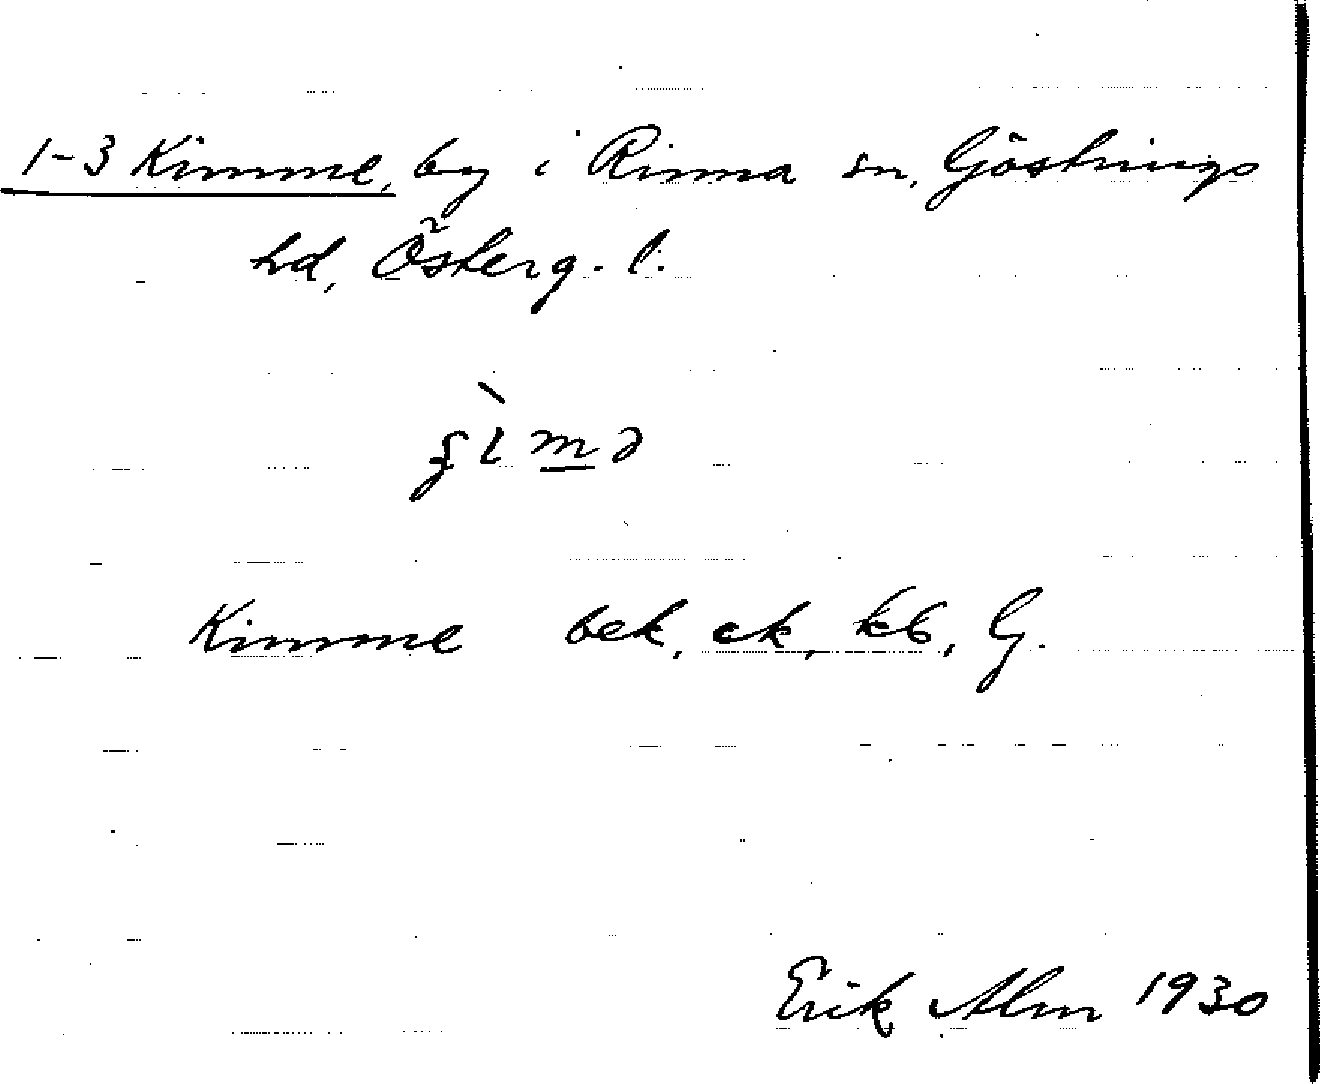 1-3 Kimme, by i Rinna sn, Göstrings
hd, Österg. l.
Kimme bek, ek, kb, G.
Erik Alm 1930